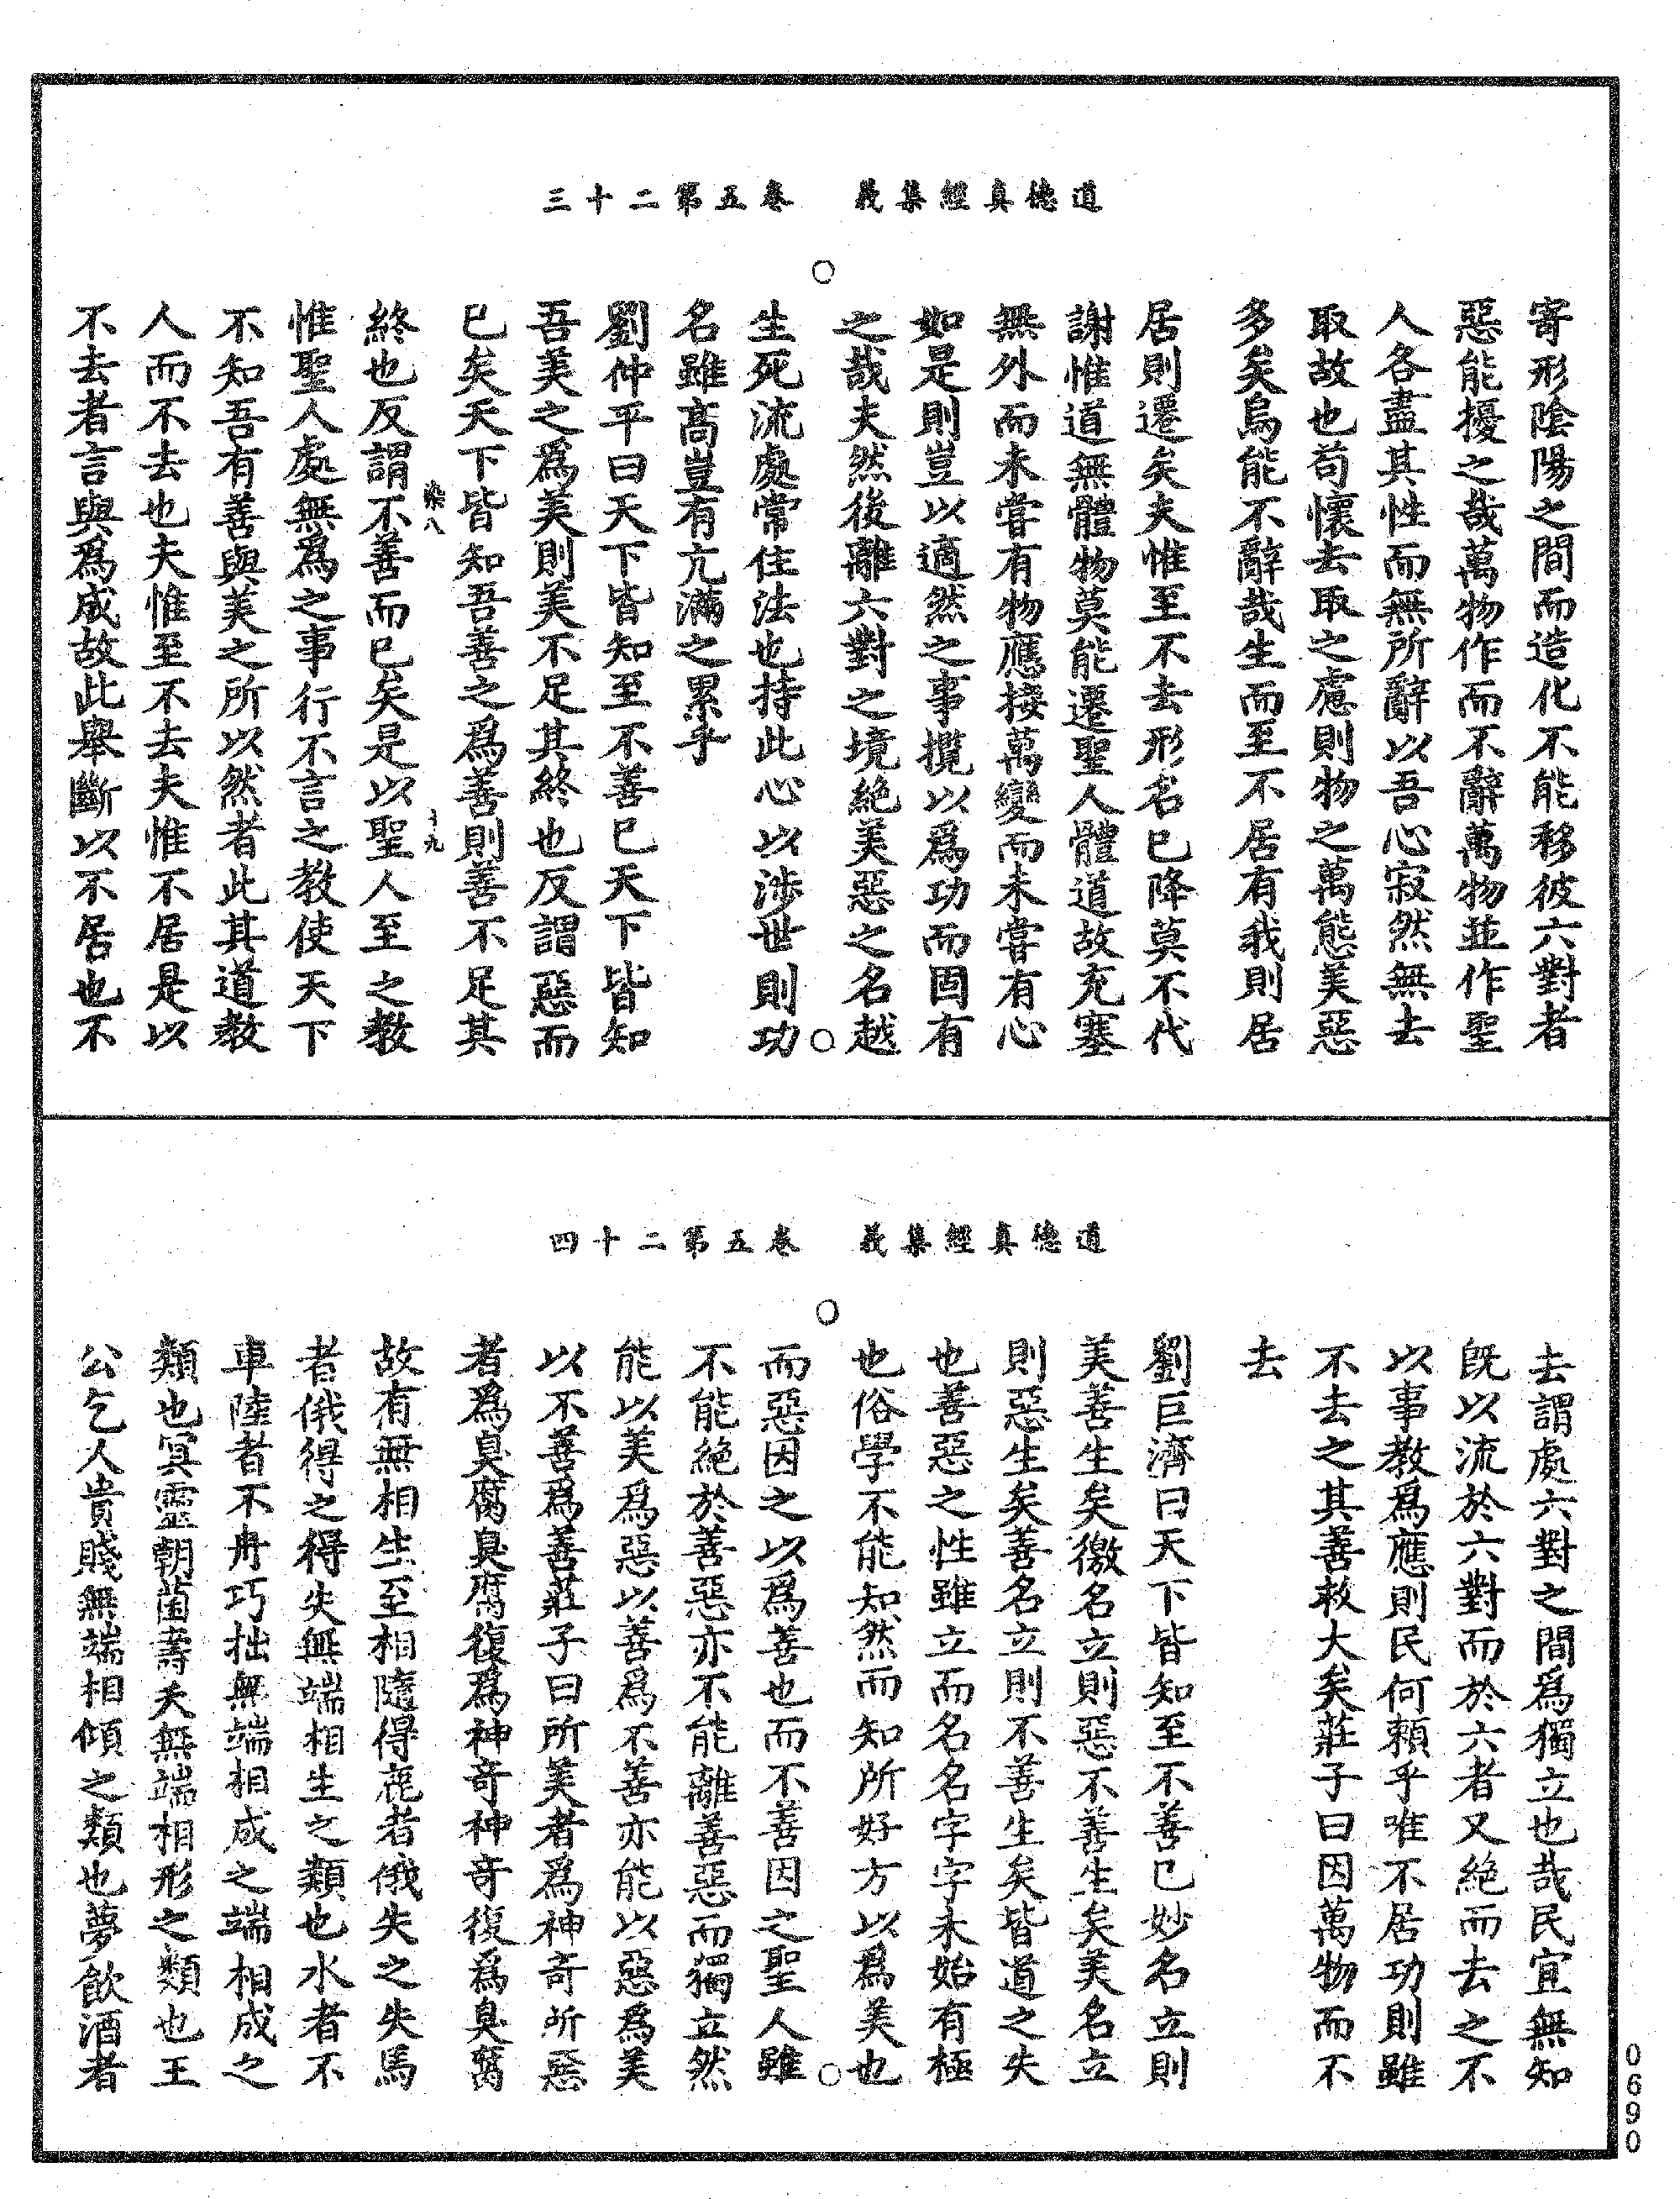 道德真經集義　卷五第二十三
寄形陰陽之間而造化不能移彼六對者
惡能擾之哉萬物作而不辭萬物並作聖
人各盡其性而無所辭以吾心寂然無去
取故也苟懷去取之慮則物之萬態美惡
多矣烏能不辭哉生而至不居有我則居
居則遷矣夫惟至不去形名已降莫不代
謝惟道無體物莫能遷聖人體道故充塞
無外而未嘗有物應接萬變而未嘗有心
如是則豈以適然之事攬以爲功而固有
之哉夫然後離六對之境絶美惡之名越
生死流處常住法也持此心以涉世則功
名雖髙豈有亢滿之累乎
劉仲平曰天下皆知至不善已天下皆知
吾美之爲美則美不足其終也反謂惡而
已矣天下皆知吾善之爲善則善不足其
染八
十九
終也反謂不善而已矣是以聖人至之教
惟聖人處無爲之事行不言之教使天下
不知吾有善與美之所以然者此其道教
人而不去也夫惟至不去夫惟不居是以
不去者言與爲成故此舉斷以不居也不
道德真經集義　卷五第二十四
去謂處六對之間爲獨立也哉民宜無知
旣以流於六對而於六者又絶而去之不
以事教爲應則民何賴乎唯不居功則雖
不去之其善救大矣莊子曰因萬物而不
去
劉巨濟曰天下皆知至不善已妙名立則
美善生矣徼名立則惡不善生矣美名立
則惡生矣善名立則不善生矣皆道之失
也善惡之性雖立而名名字字未始有極
也俗學不能知然而知所好方以爲美也
而惡因之以爲善也而不善因之聖人雖
不能絶於善惡亦不能離善惡而獨立然
能以美爲惡以善爲不善亦能以惡爲美
以不善爲善莊子曰所美者爲神奇所惡
者爲臭腐臭腐復爲神奇神奇復爲臭腐
故有無相生至相隨得鹿者俄失之失馬
者俄得之得失無端相生之類也水者不
車陸者不舟巧拙無端相成之端相成之
類也冥靈朝菌壽夭無端相形之類也王
公乞人貴賤無端相傾之類也夢飲酒者
0690